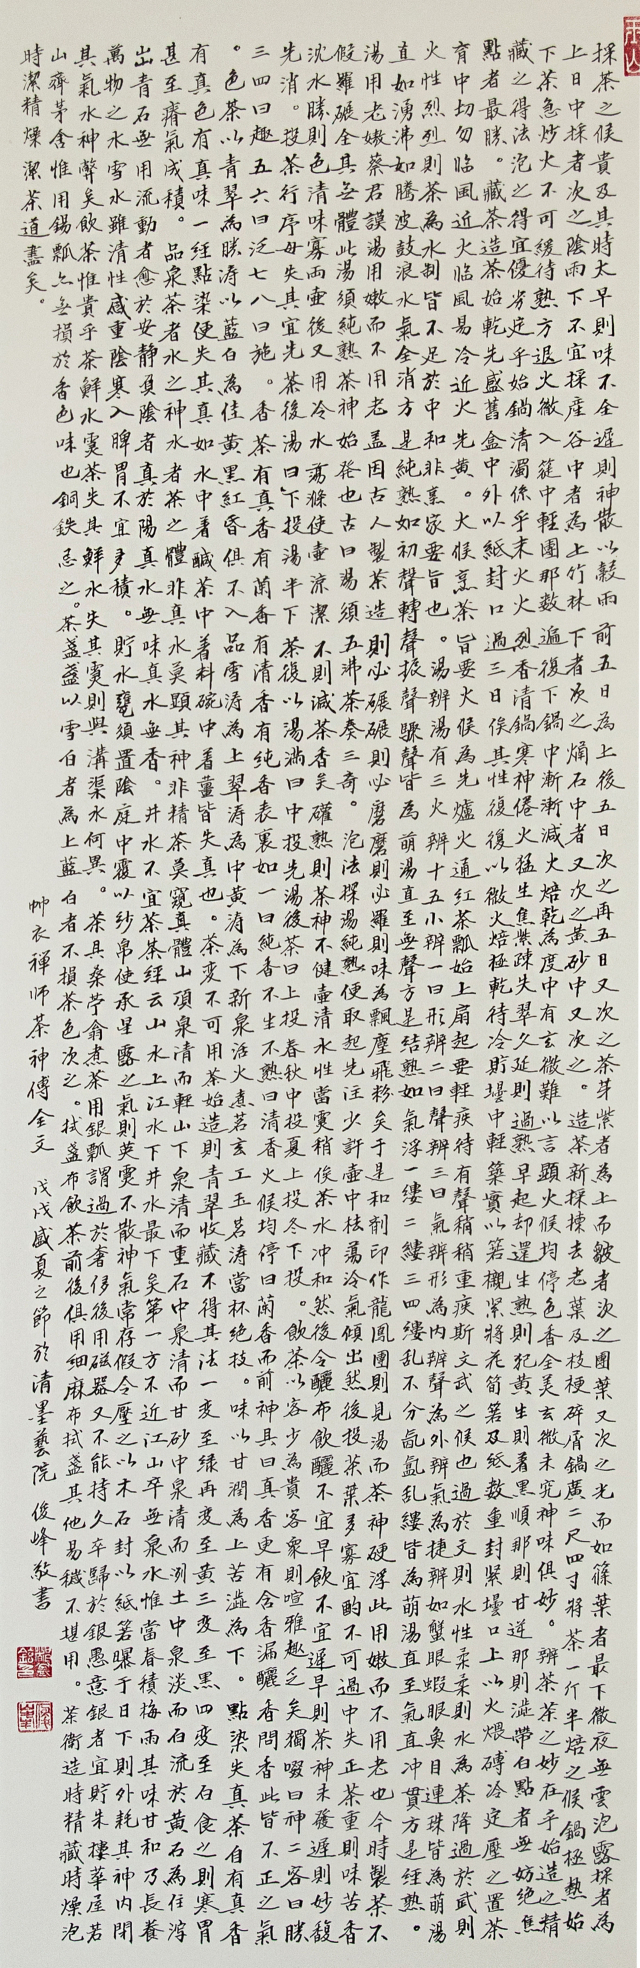 採茶之候貴及其時太早則味不全遲則神散以穀雨前五日為上後五日次之再五日又次之茶芽紫者為上而皺者次之團葉又次之光而如篠葉者最下徹夜無雲泡露採者為
上日中採者次之陰雨下不宜採產谷中者為上竹林下者次之爛石中者又次之黃砂中又次之。造茶新採揀去老葉及枝梗碎屑鍋廣二尺四寸將茶一斤半焙之候鍋極熱始
下茶急炒火不可緩待熟方退火徹入篚中輕團那數遍復下鍋中漸漸減火焙乾為度中有玄微難以言顯火候均停色香全美玄微未究神味俱妙。辨茶茶之妙在乎始造之精
藏之得法泡之得宜優劣定乎始鍋清濁係乎末火火烈香清鍋寒神倦火猛生焦柴疎失翠久延則過熟早起却還生熟則犯黃生則著黑順那則甘逆那則澁帶白點者無妨絕焦
點者最勝。藏茶造茶始乾先盛舊盒中外以紙封口過三日俟其性復復以微火焙極乾待冷貯壜中輕築實以箬襯緊將花筍箬及紙數重封紧壜口上以火煨磚冷定壓之置茶
育中切勿臨風近火臨風易冷近火先黃。火候烹茶旨要火候為先爐火通紅茶瓢始上扇起要輕疾待有聲稍稍重疾斯文武之候也過於文則水性柔柔則水為茶降過於武則
火性烈烈則茶為水制皆不足於中和非烹家要旨也。湯辨湯有三火辨十五小辨一曰形辨二曰聲辨三曰氣辨形為內辨聲為外辨氣為捷辨如蟹眼蝦眼奐目連珠皆為萌湯
直如湧沸如騰波鼓浪水氣全消方是純熟如初聲轉聲振聲驟聲皆為萌湯直至無聲方是結熟如氣浮一縷二縷三四縷乱不分氤氳乱縷皆為萌湯直至氣直冲貫方是經熟。
湯用老嫩蔡君謨湯用嫩而不用老盖因古人製茶造則必碾碾則必磨磨則必羅則味為飄塵飛粉矣于是和劑印作龍鳳團則見湯而茶神硬浮此用嫩而不用老也今時製茶不
假羅碾全具無體此湯須純熟茶神始發也古曰湯須五沸茶奏三奇。泡法探湯純熟便取起先注少許壺中袪蕩冷氣傾出然後投茶葉多寡宜酌不可過中失正茶重則味苦香
沈水勝則色清味寡兩壺後又用冷水蕩滌使壺凉潔不則減茶香矣確熟則茶神不健壺清水性當靈稍俟茶水冲和然後令釃布飲釃不宜早飲不宜遲早則茶神未發遲則妙馥
先消。投茶行序毋失其宜先茶後湯曰下投湯半下茶復以湯滿曰中投先湯後茶曰上投春秋中投夏上投冬下投。飲茶以客少為貴客衆則喧雅趣乏矣獨啜曰神二客曰勝
三四曰趣五六曰泛七八曰施。香茶有真香有蘭香有清香有純香表裏如一曰純香不生不熟曰清香火候均停曰蘭香雨前神具曰真香更有含香漏釃香問香此皆不正之氣
。色茶以青翠為勝涛以藍白為佳黃黑紅昏俱不入品雪涛為上翠涛為中黃涛為下新泉活火煮茗玄工玉茗涛當杯絕技。味以甘潤為上苦澁為下。點染失真茶自有真香
有真色有真味一經點染便失其真如水中着鹹茶中着料碗中着薑皆失真也。茶変不可用茶始造則青翠收藏不得其法一変至绿再変至黃三変至黑四変至白食之則寒胃
甚至瘠氣成積。品泉茶者水之神水者茶之體非真水莫顯其神非精茶莫窺真體山頂泉清而輕山下泉清而重石中泉清而甘砂中泉清而洌土中泉淡而白流於黃石為佳瀉
出青石無用流動者愈於安静負陰者真於陽真水無味真水無香。井水不宜茶茶經云山水上江水下井水最下矣第一方不近江山卒無泉水惟當春積梅雨其味甘和乃長養
萬物之水雪水雖清性感重陰寒入脾胃不宜多積。貯水甕須置陰庭中覆以纱帛使承星露之氣則英靈不散神氣常存假令壓之以木石封以紙箬曝于日下則外耗其神內閉
其氣水神弊矣飲茶惟貴乎茶鮮水靈茶失其鮮水失其靈則與溝渠水何異。茶具桑苧翁煮茶用銀瓢謂過於奢侈後用磁器又不能持久卒歸於銀愚意銀者宜貯朱樓華屋若
山齊茅舍惟用錫瓢亦無損於香色味也銅鉄忌之。茶盏盏以雪白者為上藍白者不損茶色次之。拭盏布飲茶前後俱用細麻布拭盏其他易穢不堪用。茶衛造時精藏時燥泡
時潔精燥潔茶道盡矣。
艸衣禪師茶神傳全文 戊戌盛夏之節於清墨藝院 俊峰敬書